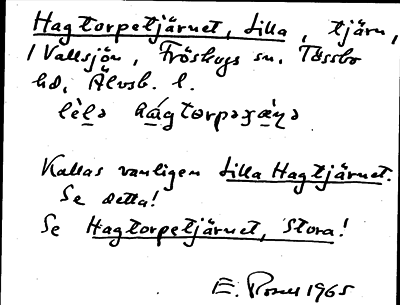 Hagtorpetjärnet, Lilla, tjärn,
i Vallsjön, Fröskogs sn. Tössbo
hd, Älvsb. l.
Kallas vanligen Lilla Hagtjärnet.
Se detta!
Se Hagtorpetjärnet, Stora!
E. 1965